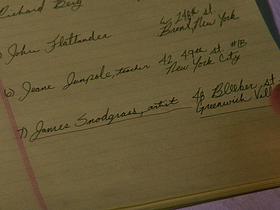 Richard Berg
W. 24th st.
Bronx, New York
John Flattander
6) Jeane Junxole, teacher 42 49th st. #1B
New York City
7) James Snodgrass, artist 43 Bleeker st
Greenwich Vill